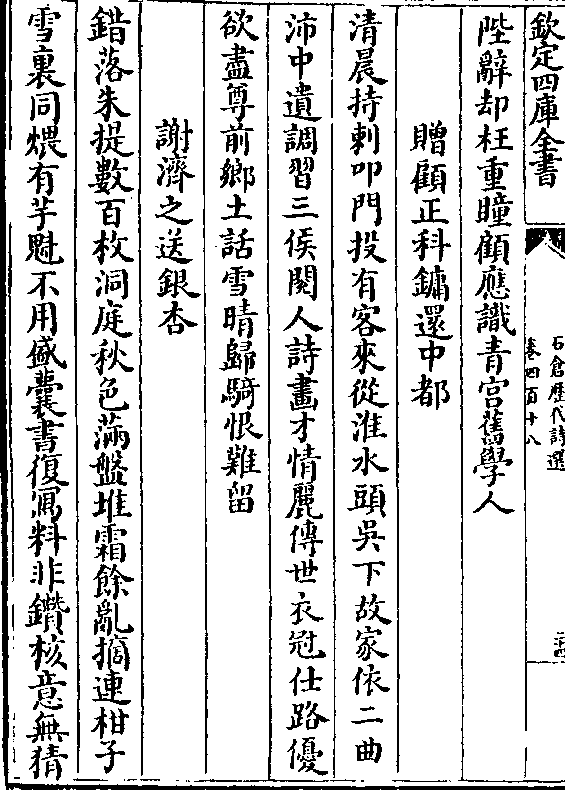 欽定四庫全書
石倉歴代詩選
卷四百十八
陛辭却枉重瞳顧應識青宫舊學人
贈顧正科鏞還中都
清晨持刺叩門投有客來從淮水頭吳下故家依二曲
沛中遺調習三侯閱人詩畫才情麗傳世衣冠仕路優
欲盡尊前鄉土話雪晴歸騎恨難留
謝濟之送銀杏
錯落朱提數百枚洞庭秋色滿盤堆霜餘亂摘連柑子
雪裏同煨有芋魁不用盛囊書復寫料非鑽核意無猜